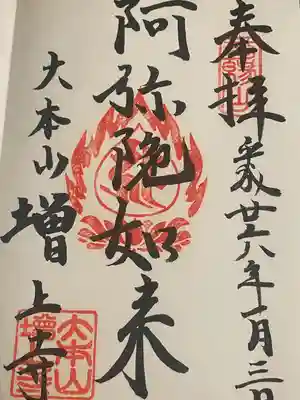 奉拝 平成廿六年一月三日
阿弥陀如来
大本山 増上寺
大本山
増上寺